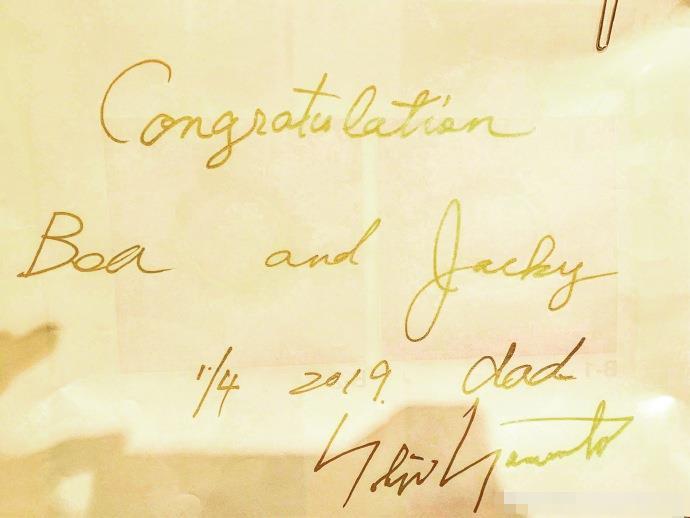 Congratulation
Boa and Jacky
1/4 2019. dad